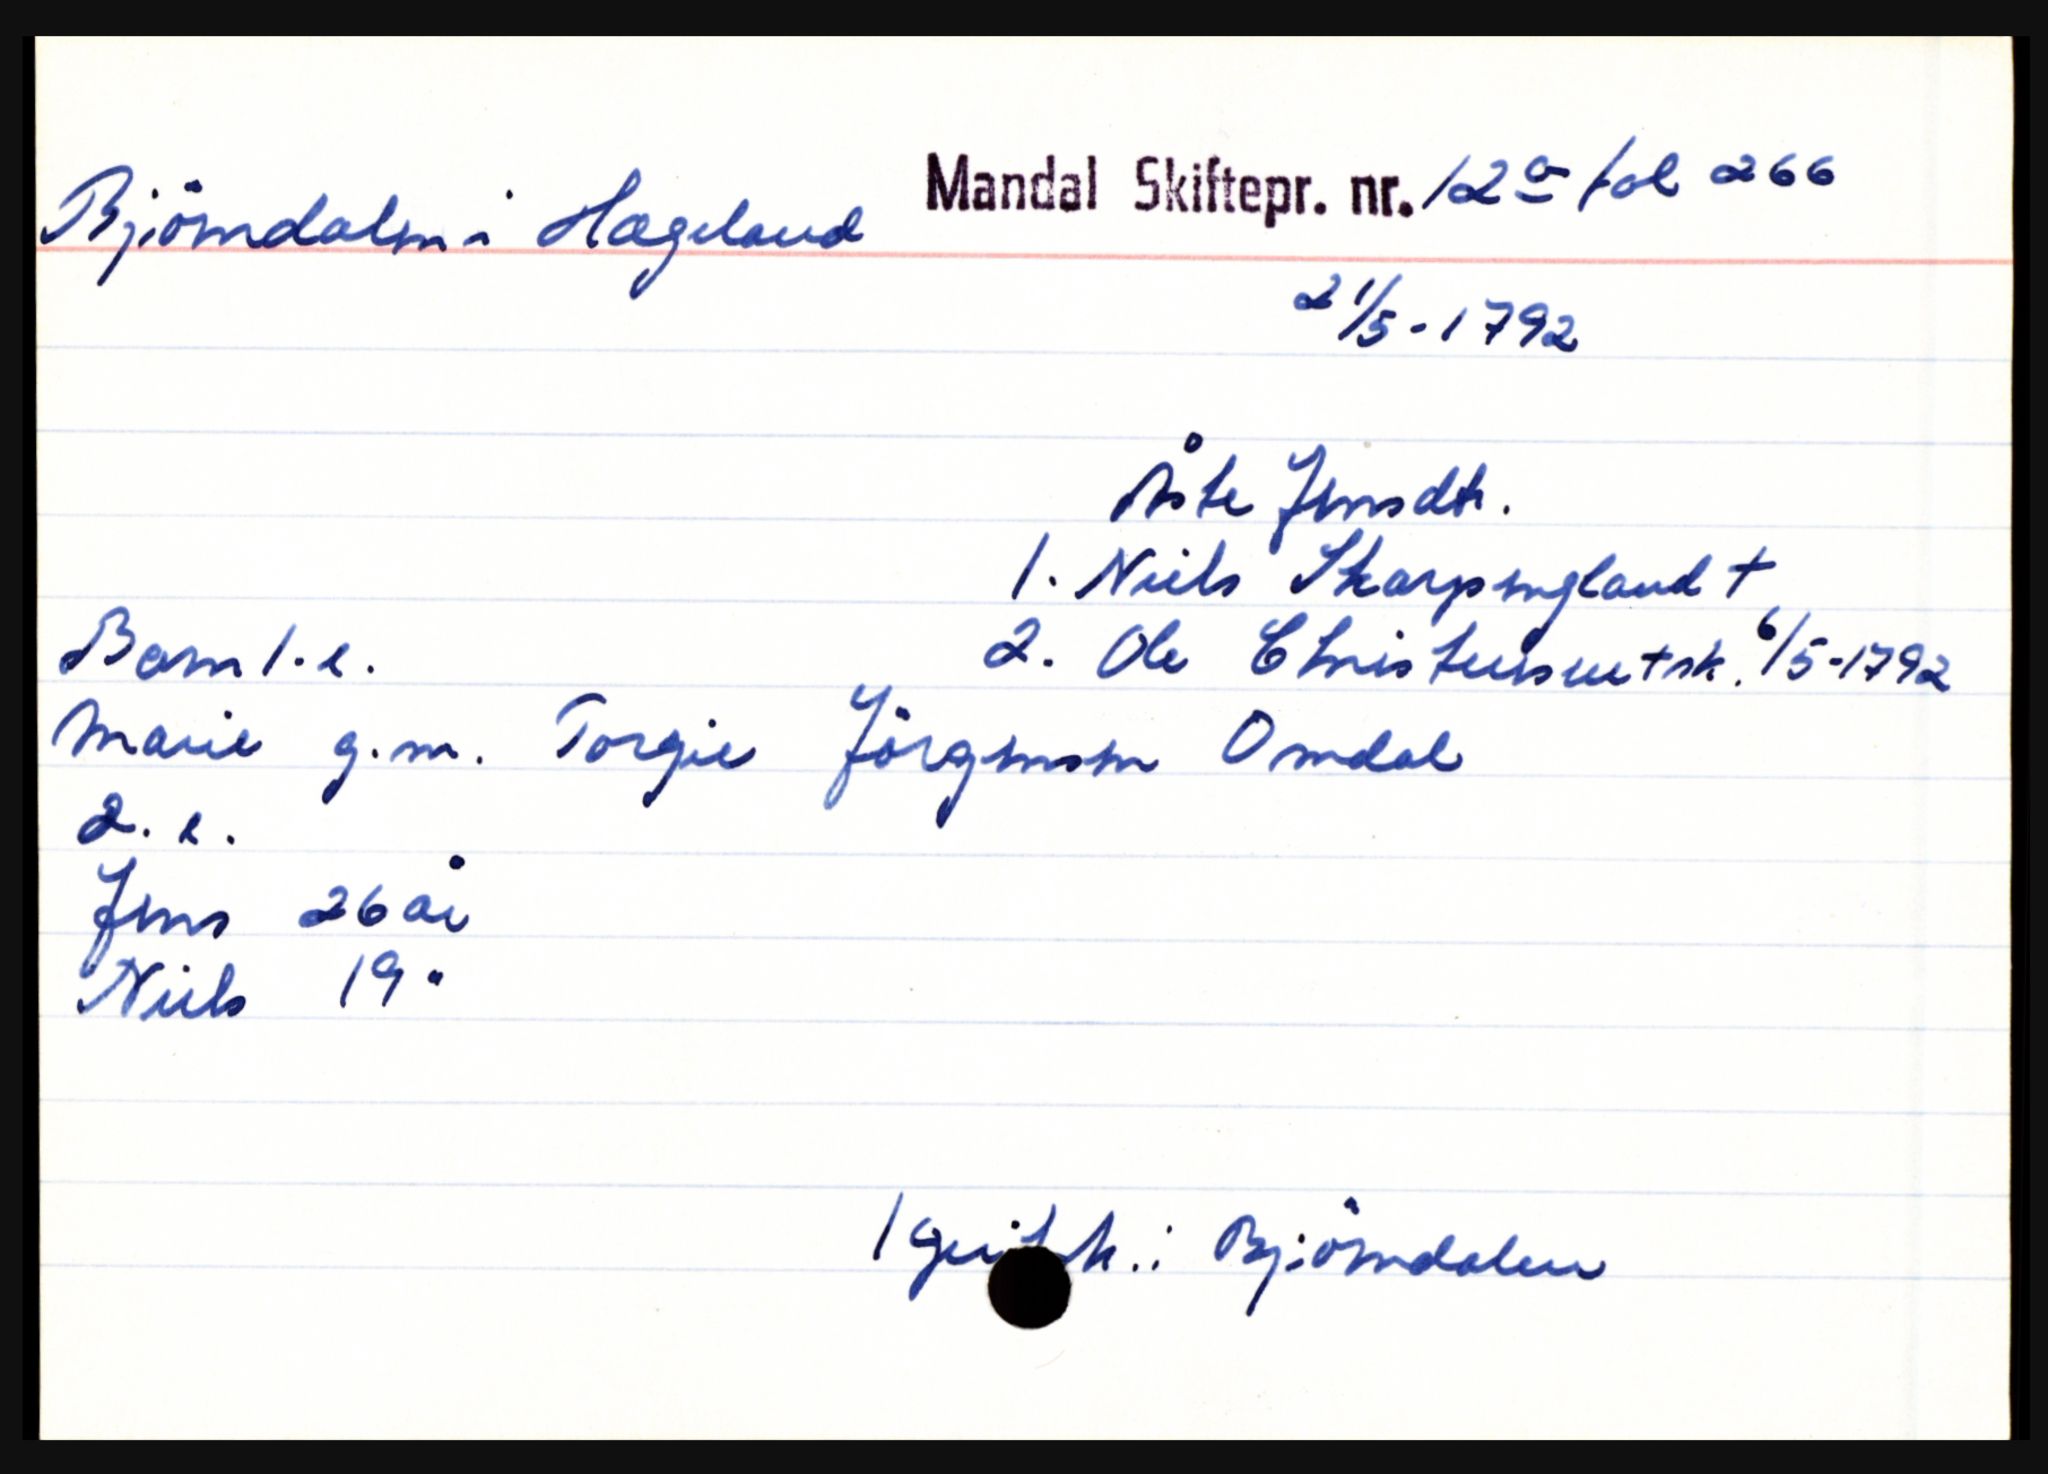 Björndalen i Hægeland Mandal Skiftepr. nr. 12a fol 266
21/5-1792
Åste Jensdtr.
1. Niels Skarpengland +
Barn 1. e. 2. Ole Christensen + sk. 6/5-1792
Marie g.m. Torgie Jörgensen Omdal
2. e.
Jens 26 år
Niels 19 "
1 geitsk. i Björndalen